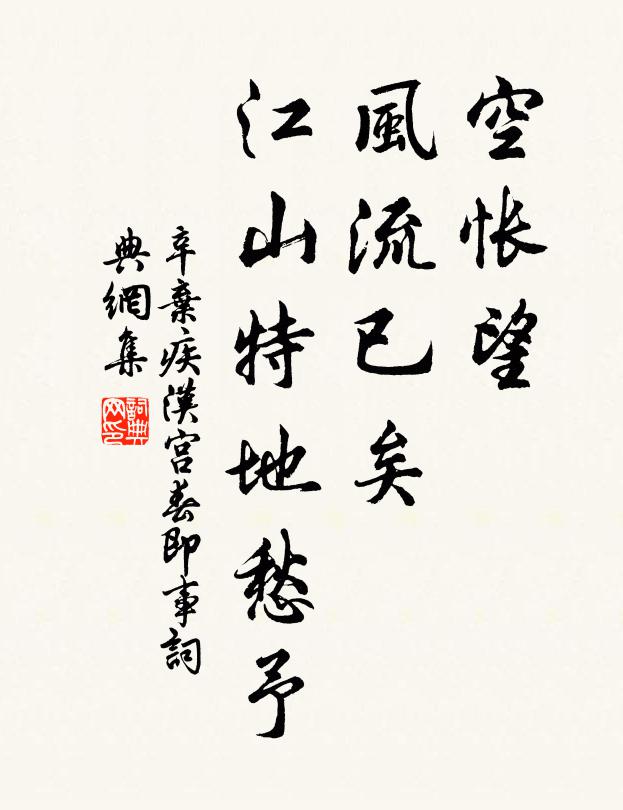 空悵望
風流已矣
江山特地愁予
辛棄疾漢宮春即事詞
典網集
詞典
网印